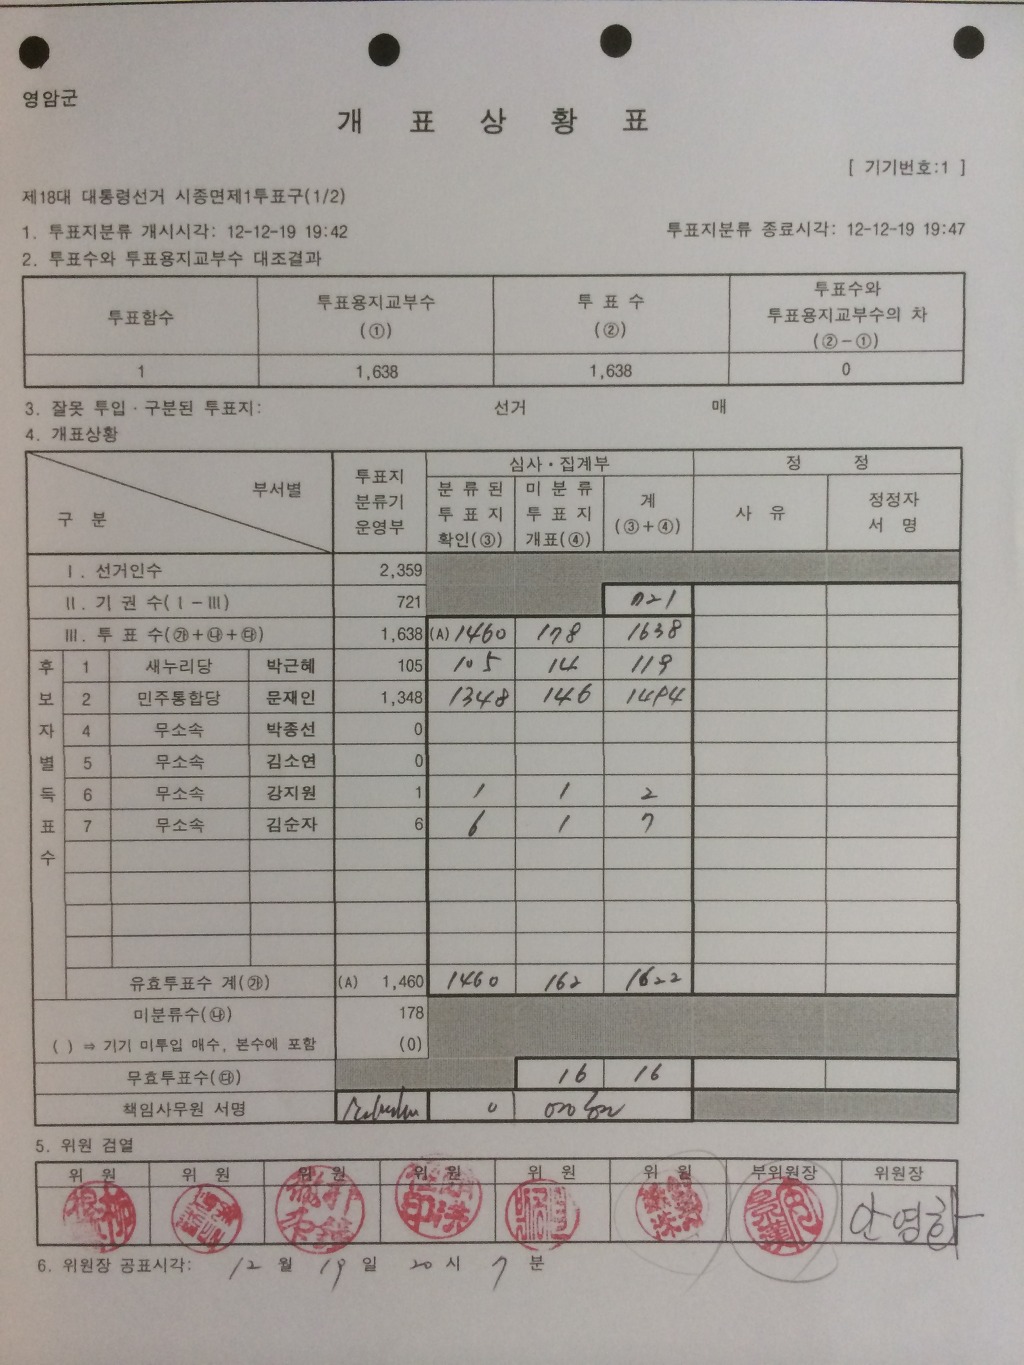 영암군
개 표 상 황 표
[ 기기번호:1 ]
제18대 대통령선거 시종면제1투표구(1/2)
1. 투표지분류 개시시각: 12-12-19 19:42 투표지분류 종료시각: 12-12-19 19:47
2. 투표수와 투표용지교부수 대조결과
투표함수 투표용지교부수 (①) 투 표 수 (②) 투표수와 투표용지교부수의 차 (②-①)
1 1,638 1,638 0
3. 잘못 투입·구분된 투표지: 선거 매
4. 개표상황
구 분 부서별 투표지 분류기 운영부 심사·집계부 정 정
분 류 된 투 표 지 확인(③) 미 분 류 투 표 지 개표(④) 계 (③+④) 사 유 정정자 서 명
Ⅰ. 선거인수 2,359
Ⅱ. 기 권 수(Ⅰ-Ⅲ) 721 721
Ⅲ. 투 표 수(㉮+㉯+㉰) 1,638 (A) 1460 178 1638
후보자별득표수
1 새누리당 박근혜 105 105 14 119
2 민주통합당 문재인 1,348 1348 146 1494
4 무소속 박종선 0
5 무소속 김소연 0
6 무소속 강지원 1 1 1 2
7 무소속 김순자 6 6 1 7
유효투표수 계(㉮) (A) 1,460 1460 162 1622
미분류수(㉯) 178
( ) ⇒ 기기 미투입 매수, 본수에 포함 (0)
무효투표수(㉰) 16 16
책임사무원 서명
5. 위원 검열
위 원 위 원 위 원 위 원 위 원 위 원 부위원장 위원장
6. 위원장 공표시각: 12 월 19 일 20 시 7 분